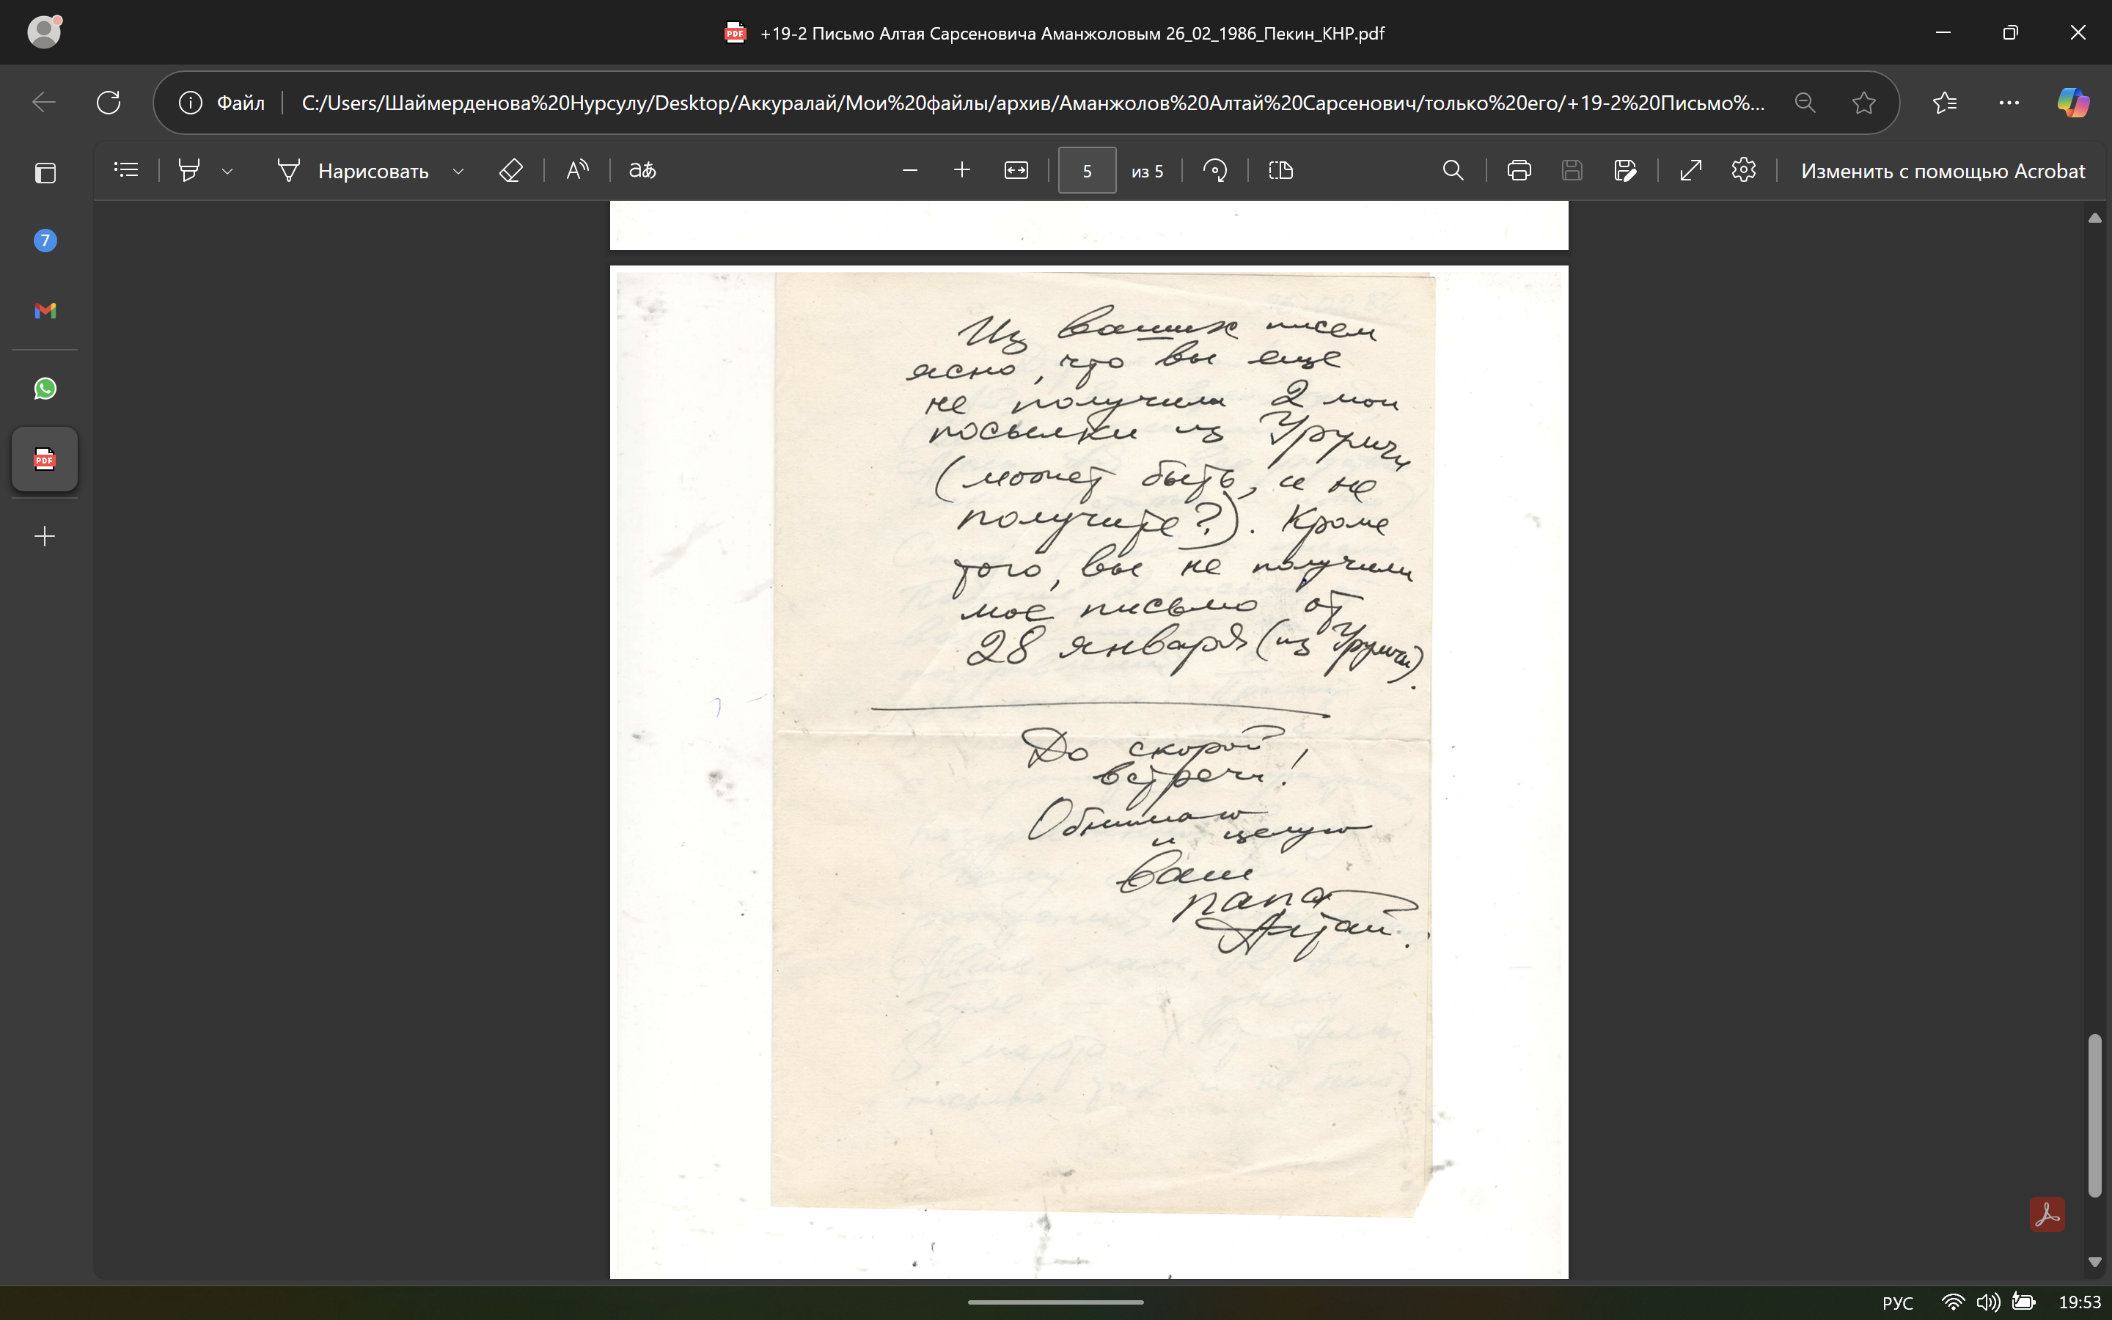 +19-2 Письмо Алтая Сарсеновича Аманжоловым 26_02_1986_Пекин_КНР.pdf
Файл C:/Users/Шаймерденова%20Нурсулу/Desktop/Аккуралай/Мои%20файлы/архив/Аманжолов%20Алтай%20Сарсенович/только%20его/+19-2%20Письмо%...
Нарисовать
aあ
5 из 5
Изменить с помощью Acrobat
7
PDF
Из ваших писем
ясно, что вы еще
не получили 2 мои
посылки из Урумчи
(может быть, и не
получите?). Кроме
того, вы не получили
мое письмо от
28 января (из Урумчи).
До скорой
встречи!
Обнимаю
и целую
Ваш
папа
Алтай.
РУС 19:53